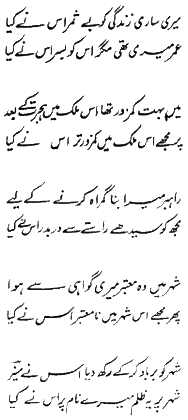 میری ساری زندگی کو بے ثمر اس نے کیا
عمر میری تھی مگر اس کو بسر اس نے کیا
میں بہت کمزور تھا اس ملک میں ہجرت کے بعد
پر مجھے اس ملک میں کمزور تر اس نے کیا
راہبر میرا بنا گمراہ کرنے کے لیے
مجھ کو سیدھے راستے سے در بدر اس نے کیا
شہر میں وہ معتبر میری گواہی سے ہوا
پھر مجھے اس شہر میں نا معتبر اس نے کیا
شہر کو برباد کر کے رکھ دیا اس نے منیر
شہر پر یہ ظلم میرے نام پر اس نے کیا